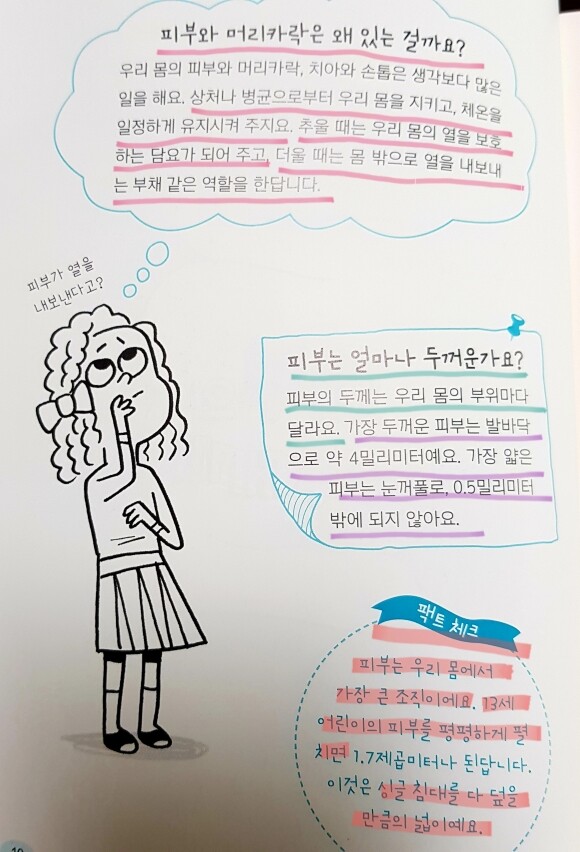 피부와 머리카락은 왜 있는 걸까요?
우리 몸의 피부와 머리카락, 치아와 손톱은 생각보다 많은
일을 해요. 상처나 병균으로부터 우리 몸을 지키고, 체온을
일정하게 유지시켜 주지요. 추울 때는 우리 몸의 열을 보호
하는 담요가 되어 주고, 더울 때는 몸 밖으로 열을 내보내
는 부채 같은 역할을 한답니다.
피부가 열을
내보낸다고?
피부는 얼마나 두꺼운가요?
피부의 두께는 우리 몸의 부위마다
달라요. 가장 두꺼운 피부는 발바닥
으로 약 4밀리미터예요. 가장 얇은
피부는 눈꺼풀로, 0.5밀리미터
밖에 되지 않아요.
팩트 체크
피부는 우리 몸에서
가장 큰 조직이에요. 13세
어린이의 피부를 평평하게 펼
치면 1.7제곱미터나 된답니다.
이것은 싱글 침대를 다 덮을
만큼의 넓이예요.